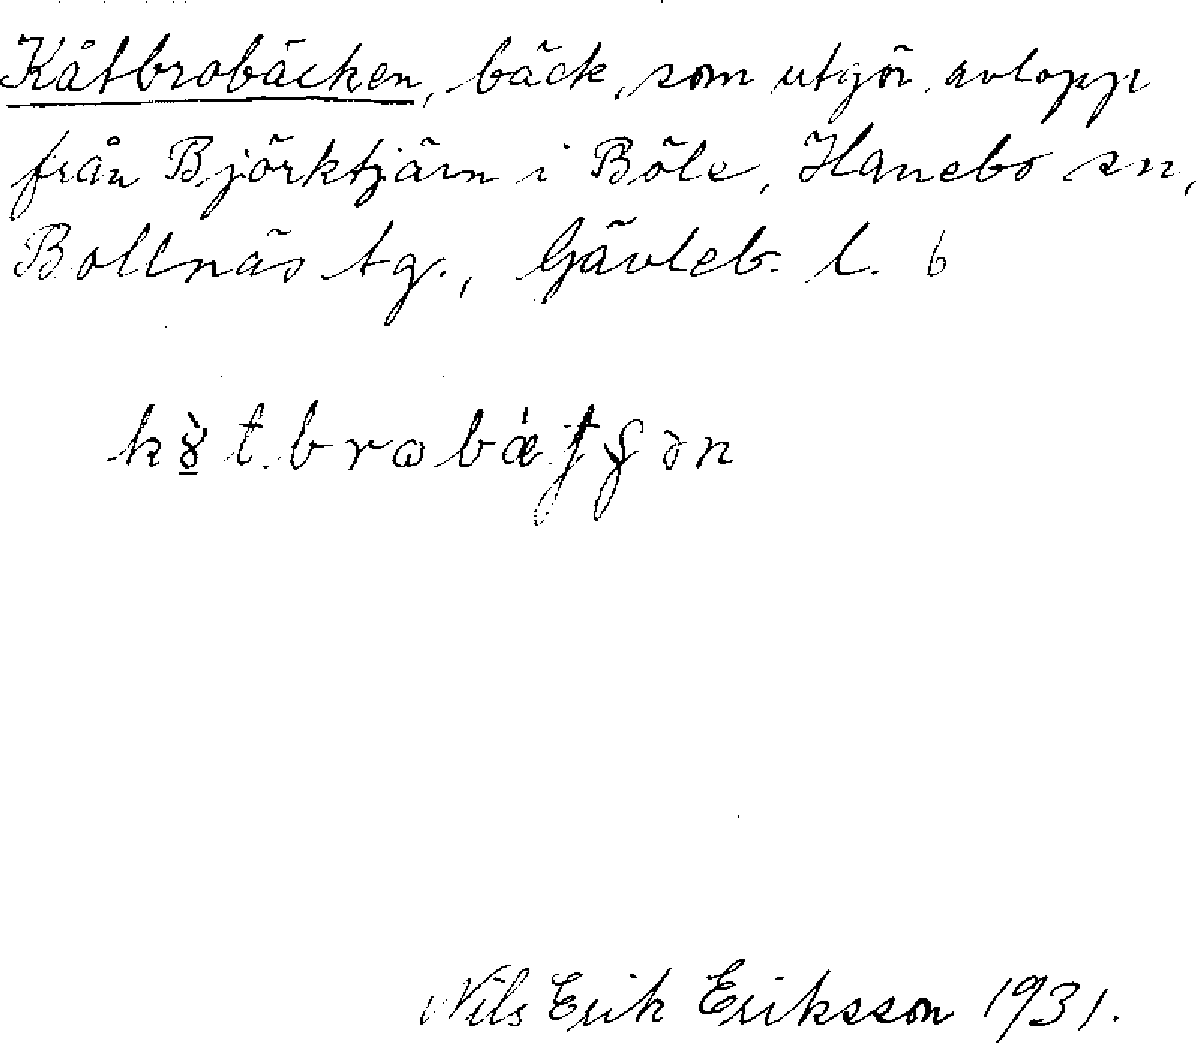 Kåtbrobäcken, bäck, som utgör avlopp
från Björktjärn i Böle, Hanebo sn,
Bollnäs tg., Gävleb. l. 6
Nils Erik Eriksson 1931.